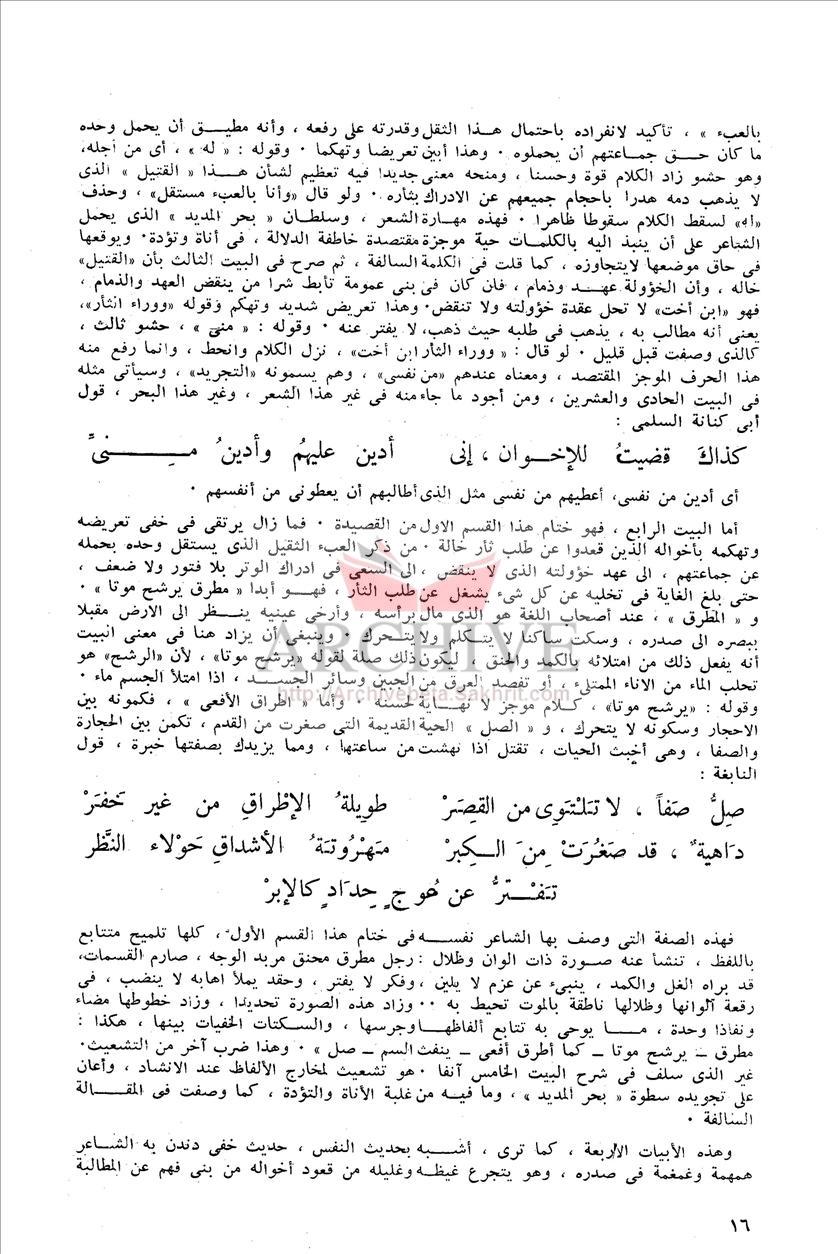 بالعبء » ، تأكيد لانفراده باحتمال هذا الثقل وقدرته على رفعه ، وأنه مطيق أن يحمل وحده
ما كان حق جماعتهم أن يحملوه ٠ وهذا أبين تعريضا وتهكما ٠ وقوله : « له » ، أى من أجله،
وهو حشو زاد الكلام قوة وحسنا ، ومنحه معنى جديدا فيه تعظيم لشأن هذا « القتيل » الذى
لا يذهب دمه هدرا باحجام جميعهم عن الادراك بثاره ٠ ولو قال «وأنا بالعبء مستقل» ، وحذف
«له» لسقط الكلام سقوطا ظاهرا ٠ فهذه مهارة الشعر ، وسلطان « بحر المديد » الذى يحمل
الشاعر على أن ينبذ اليه بالكلمات حية موجزة مقتصدة خاطفة الدلالة ، فى أناة وتؤدة٠ ويوقعها
فى حاق موضعها لايتجاوزه ، كما قلت فى الكلمة السالفة ، ثم صرح فى البيت الثالث بأن «القتيل»
خاله ، وأن الخؤولة عهد وذمام ، فان كان فى بنى عمومة تأبط شرا من ينقض العهد والذمام ،
فهو «ابن أخت» لا تحل عقدة خؤولته ولا تنقض٠ وهذا تعريض شديد وتهكم وقوله «ووراء الثأر»،
يعنى أنه مطالب به ، يذهب فى طلبه حيث ذهب، لا يفتر عنه ٠ وقوله : « منى » ، حشو ثالث ،
كالذى وصفت قبل قليل ٠ لو قال : « ووراء الثأر ابن أخت» ، نزل الكلام وانحط ، وانما رفع منه
هذا الحرف الموجز المقتصد ، ومعناه عندهم «من نفسى» ، وهم يسمونه «التجريد» ، وسيأتى مثله
فى البيت الحادى والعشرين ، ومن أجود ما جاء منه فى غير هذا الشعر ، وغير هذا البحر ، قول
أبى كنانة السلمى :
كذاكَ قضيتُ للإخوان ، إنى أدين عليهمُ وأدينُ مِنىِّ
أى أدين من نفسى، أعطيهم من نفسى مثل الذى أطالبهم أن يعطونى من أنفسهم ٠
أما البيت الرابع ، فهو ختام هذا القسم الاول من القصيدة ٠ فما زال يرتقى فى خفى تعريضه
وتهكمه بأخواله الذين قعدوا عن طلب ثأر خالة ٠ من ذكر العبء الثقيل الذى يستقل وحده بحمله
عن جماعتهم ، الى عهد خؤولته الذى لا ينقض ، الى السعى فى ادراك الوتر بلا فتور ولا ضعف ،
حتى بلغ الغاية فى تخليه عن كل شىء يشغل عن طلب الثأر ، فهو أبدا « مطرق يرشح موتا » ٠
و « المطرق » ، عند أصحاب اللغة هو الذى مال برأسه ، وأرخى عينيه ينظر الى الارض مقبلا
ببصره الى صدره ، وسكت ساكنا لا يتكلم ولا يتحرك ٠ وينبغى أن يزاد هنا فى معنى البيت
أنه يفعل ذلك من امتلائه بالكمد والحنق ، ليكون ذلك صلة لقوله «يرشح موتا» ، لأن «الرشح» هو
تحلب الماء من الاناء الممتلىء ، أو تفصد العرق من الجبين وسائر الجسد ، اذا امتلأ الجسم ماء ٠
وقوله : «يرشح موتا» ، كلام موجز لا نهاية لحسنه ٠ وأما « اطراق الأفعى » ، فكمونه بين
الاحجار وسكونه لا يتحرك ، و « الصل » الحية القديمة التى صغرت من القدم ، تكمن بين الحجارة
والصفا ، وهى أخبث الحيات ، تقتل اذا نهشت من ساعتها ، ومما يزيدك بصفتها خبرة ، قول
النابغة :
صِلُّ صَفاً ، لا تَلْتَوِى من القِصَرْ طويلةُ الإطراقِ من غير خَفَرْ
داهيةٌ ، قد صَغُرَتْ مِنَ الكِبرْ مَهْرُوتَةُ الأشداقِ حَوْلاء النَّظَر
تَفْتَرُّ عن عُوجٍ حِدَادٍ كالإبرْ
فهذه الصفة التى وصف بها الشاعر نفسه فى ختام هذا القسم الأول ، كلها تلميح متتابع
باللفظ ، تنشأ عنه صورة ذات الوان وظلال : رجل مطرق محنق مربد الوجه ، صارم القسمات،
قد براه الغل والكمد ، ينبىء عن عزم لا يلين، وفكر لا يفتر ، وحقد يملأ اهابه لا ينضب ، فى
رقعة ألوانها وظلالها ناطقة بالموت تحيط به ٠٠ وزاد هذه الصورة تحديدا ، وزاد خطوطها مضاء
ونفاذا وحدة ، ما يوحى به تتابع ألفاظها وجرسها ، والسكتات الخفيات بينها ، هكذا :
مطرق – يرشح موتا – كما أطرق أفعى – ينفث السم – صل » ٠ وهذا ضرب آخر من التشعيث٠
غير الذى سلف فى شرح البيت الخامس آنفا ٠ هو تشعيث لمخارج الألفاظ عند الانشاد ، وأعان
على تجويده سطوة « بحر المديد » ، وما فيه من غلبة الأناة والتؤدة ، كما وصفت فى المقالة
السالفة ٠
وهذه الأبيات الاربعة ، كما ترى ، أشبه بحديث النفس ، حديث خفى دندن به الشاعر
همهمة وغمغمة فى صدره ، وهو يتجرع غيظه وغليله من قعود أخواله من بنى فهم عن المطالبة
١٦
ARCHIVE
http://Archivebeta.Sakhrit.com